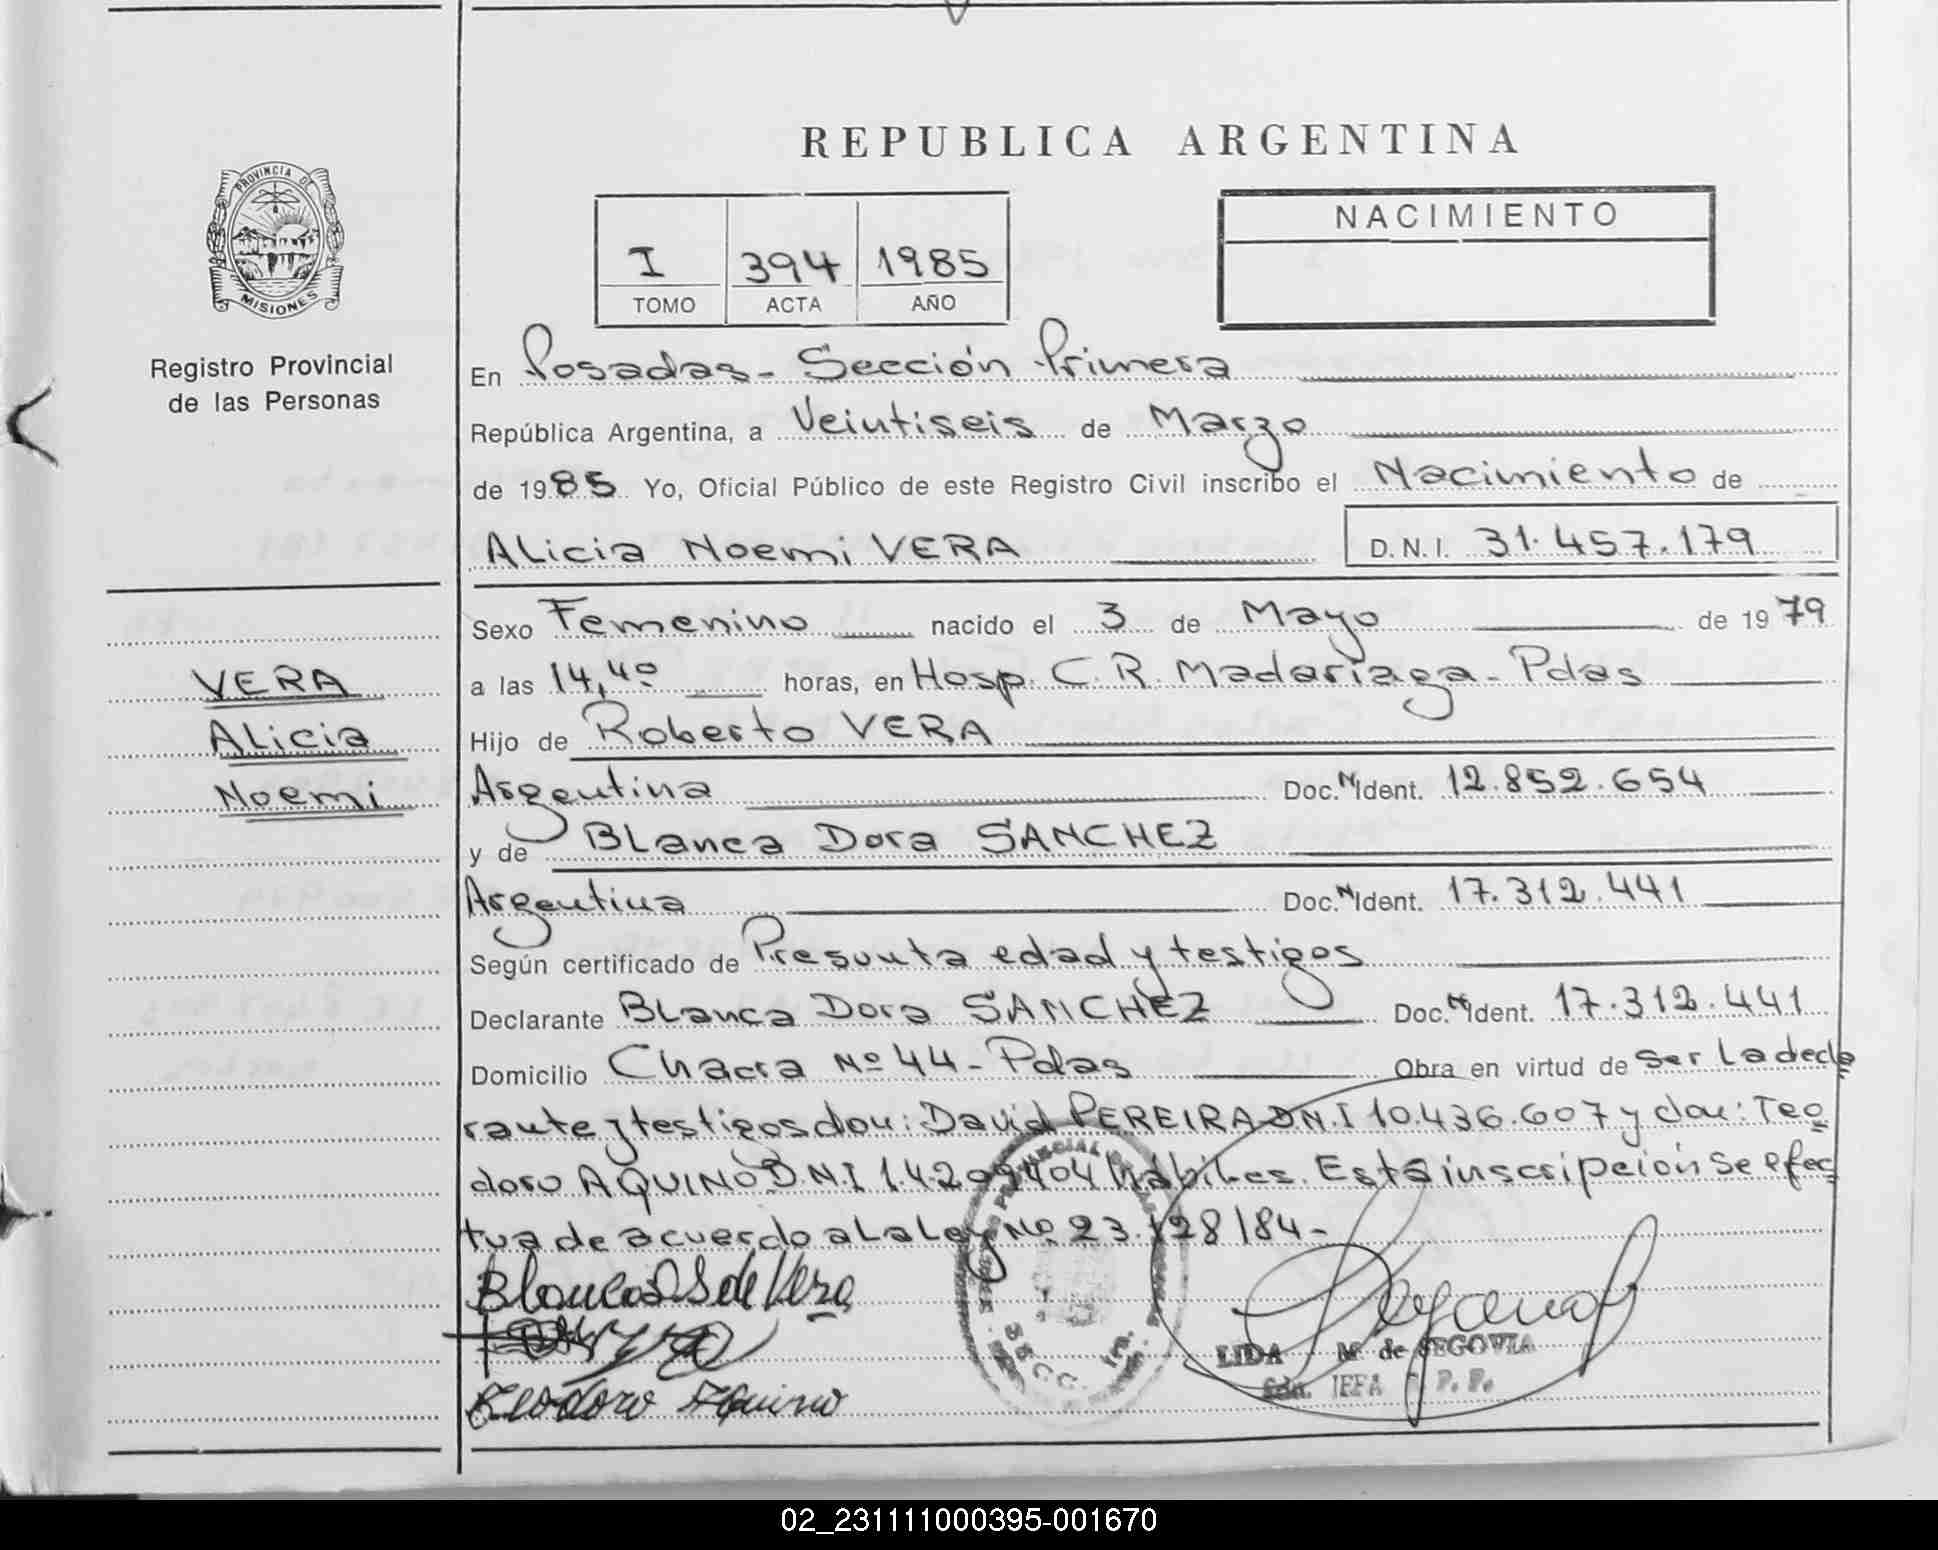 REPUBLICA ARGENTINA
PROVINCIA DE
MISIONES
Registro Provincial
de las Personas
I 394 1985
TOMO ACTA AÑO
NACIMIENTO
En Posadas - Sección Primera
República Argentina, a Veintiseis de Marzo
de 1985 Yo, Oficial Público de este Registro Civil inscribo el Nacimiento de
ALicia Noemi VERA D.N.I. 31.457.179
VERA
ALicia
Noemi
Sexo Femenino nacido el 3 de Mayo de 1979
a las 14,40 horas, en Hosp. C. R. Madariaga - Pdas
Hijo de Roberto VERA
Argentina Doc. Ident. 12.852.654
y de BLanca Dora SANCHEZ
Argentina Doc. Ident. 17.312.441
Según certificado de Presunta edad y testigos
Declarante BLanca Dora SANCHEZ Doc. Ident. 17.312.441
Domicilio Chacra Nº 44 - Pdas Obra en virtud de ser La decla
rante y testigos don: David PEREIRA D.N.I 10.436.607 y don: Teo
doro AQUINO D.N.I 14.209.404 hábiles. Esta inscripción se efec
tua de acuerdo a La Ley Nº 23.128/84 -
Blanca D S de Vera
Teodoro Aquino
SECC. 1ra.
LIDA M. de SEGOVIA
JEFA
02_231111000395-001670